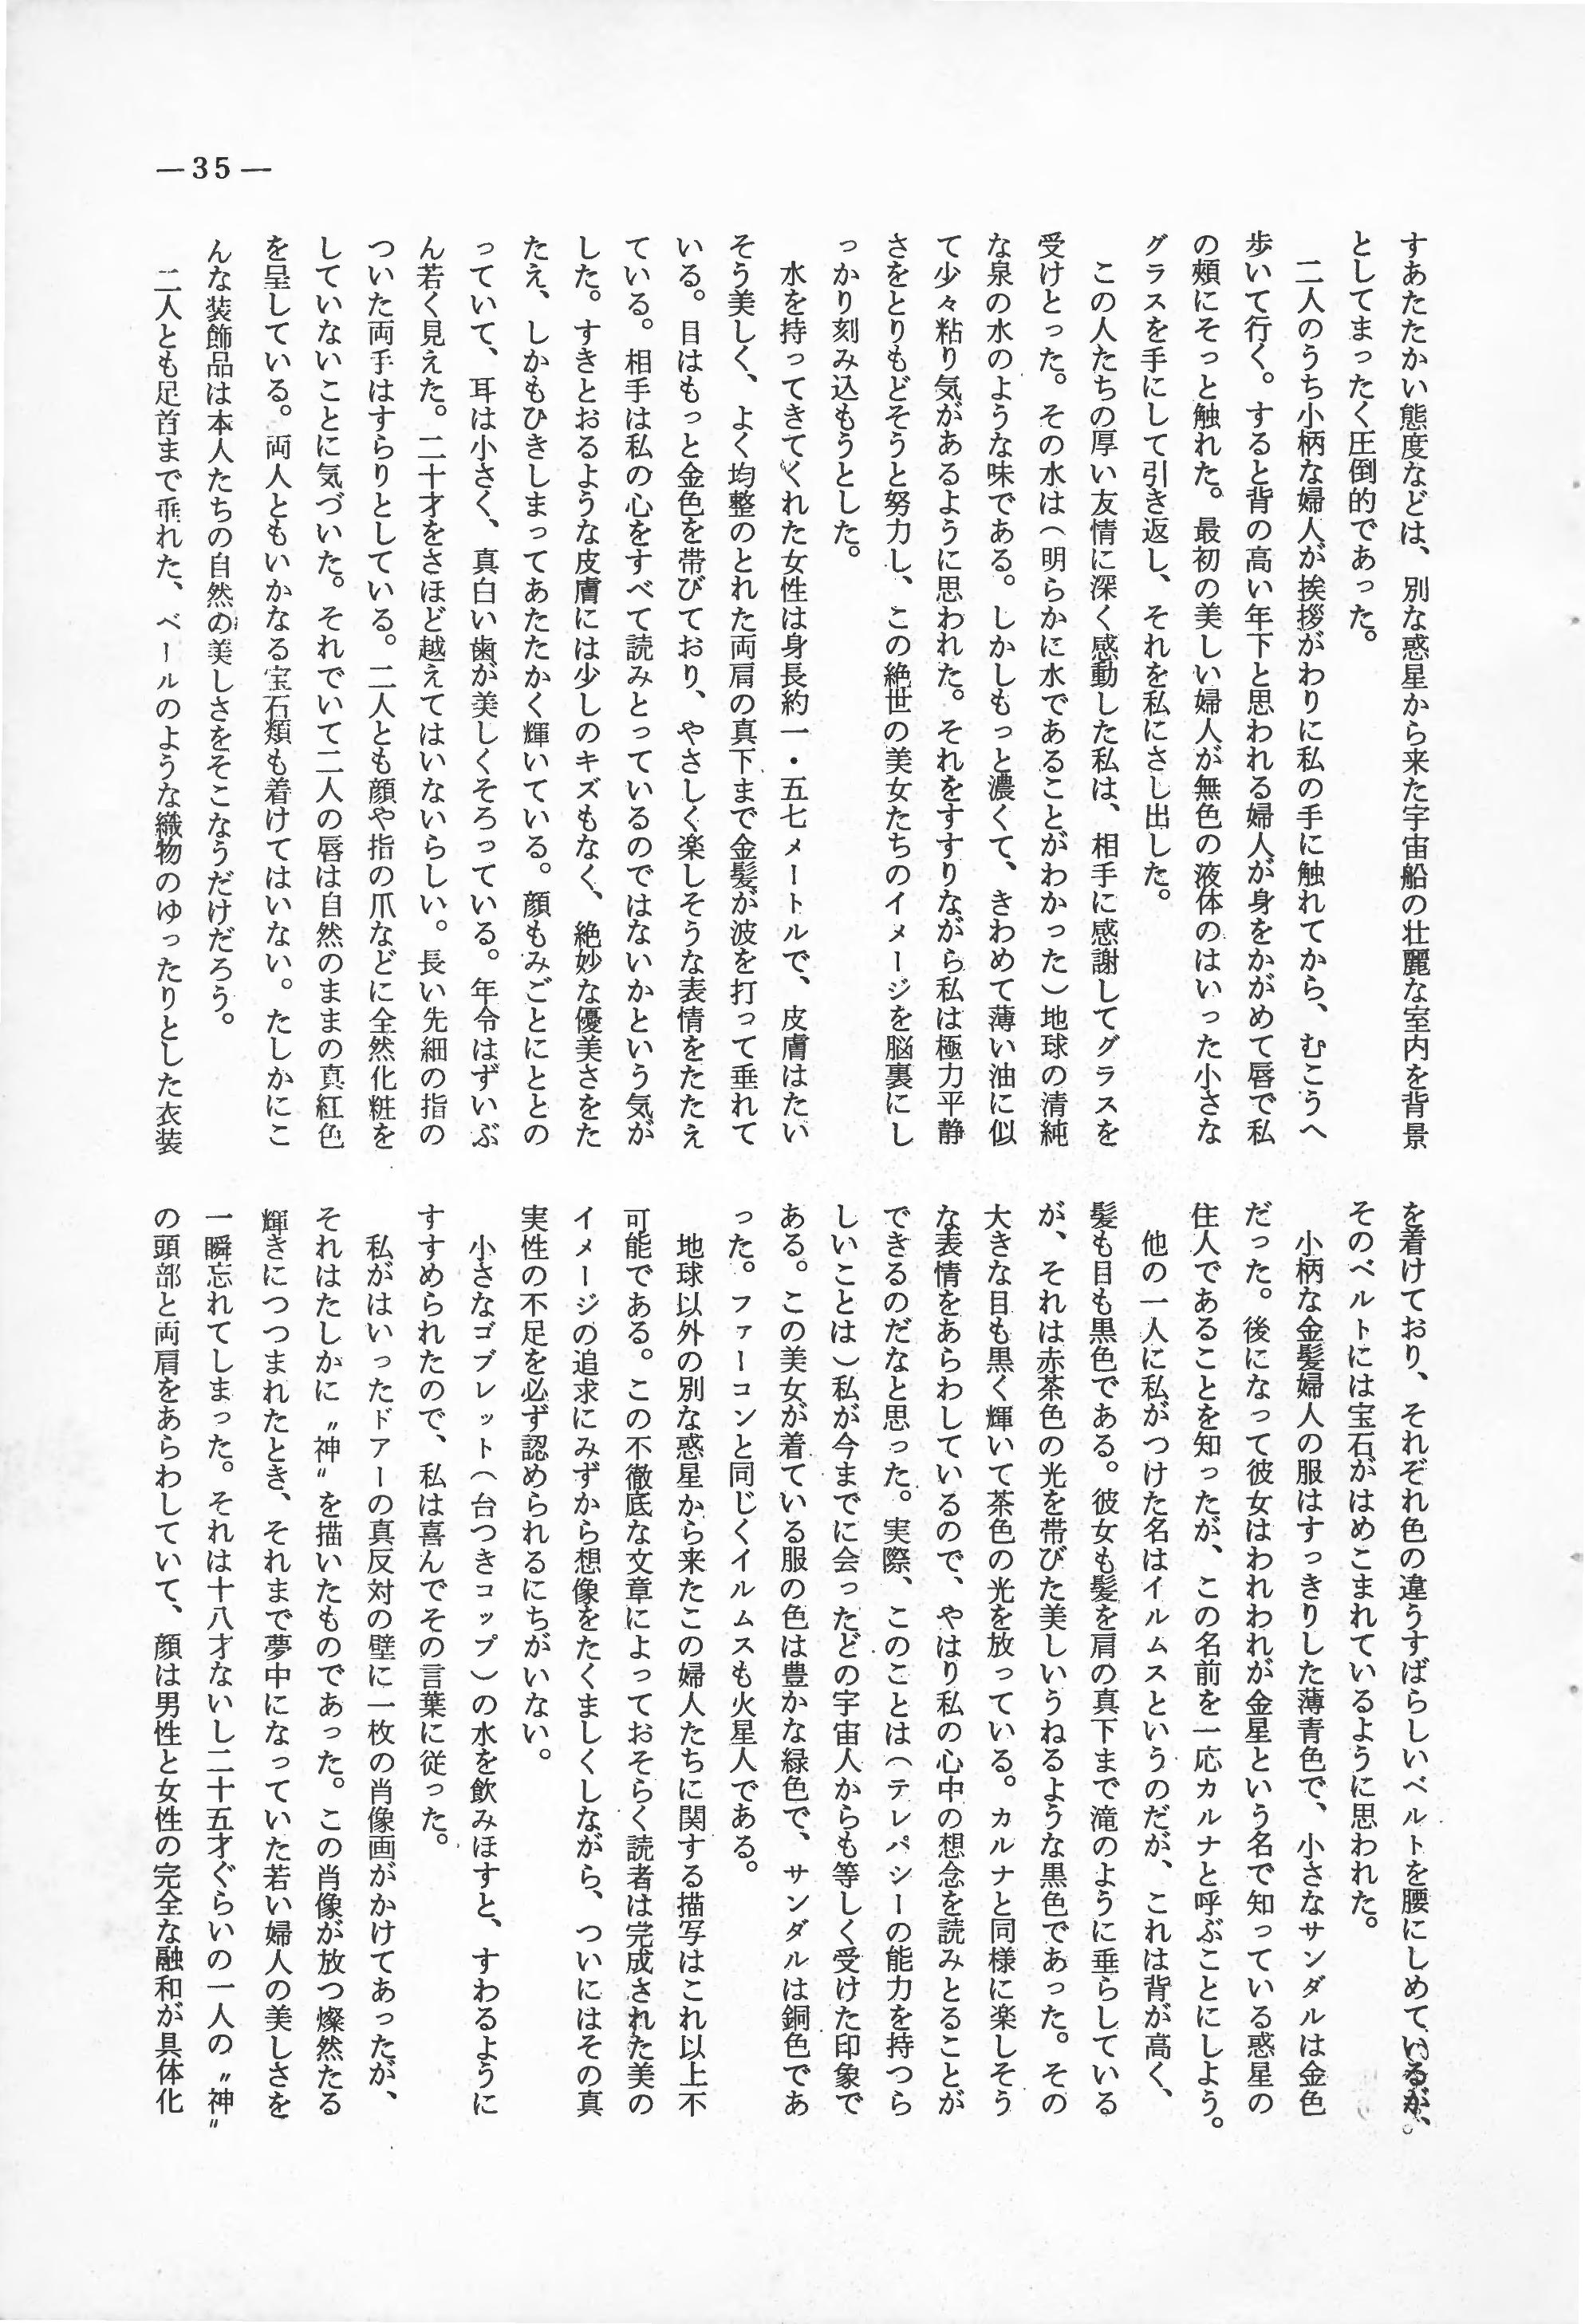 —35—
すあたたかい態度などは、別な惑星から来た宇宙船の壮麗な室内を背景
としてまったく圧倒的であった。
二人のうち小柄な婦人が挨拶がわりに私の手に触れてから、むこうへ
歩いて行く。すると背の高い年下と思われる婦人が身をかがめて唇で私
の頰にそっと触れた。最初の美しい婦人が無色の液体のはいった小さな
グラスを手にして引き返し、それを私にさし出した。
この人たちの厚い友情に深く感動した私は、相手に感謝してグラスを
受けとった。その水は(明らかに水であることがわかった)地球の清純
な泉の水のような味である。しかしもっと濃くて、きわめて薄い油に似
て少々粘り気があるように思われた。それをすすりながら私は極力平静
さをとりもどそうと努力し、この絶世の美女たちのイメージを脳裏にし
っかり刻み込もうとした。
水を持ってきてくれた女性は身長約一・五七メートルで、皮膚はたい
そう美しく、よく均整のとれた両肩の真下まで金髪が波を打って垂れて
いる。目はもっと金色を帯びており、やさしく楽しそうな表情をたたえ
ている。相手は私の心をすべて読みとっているのではないかという気が
した。すきとおるような皮膚には少しのキズもなく、絶妙な優美さをた
たえ、しかもひきしまってあたたかく輝いている。顔もみごとにととの
っていて、耳は小さく、真白い歯が美しくそろっている。年令はずいぶ
ん若く見えた。二十才をさほど越えてはいないらしい。長い先細の指の
ついた両手はすらりとしている。二人とも顔や指の爪などに全然化粧を
していないことに気づいた。それでいて二人の唇は自然のままの真紅色
を呈している。両人ともいかなる宝石類も着けてはいない。たしかにこ
んな装飾品は本人たちの自然の美しさをそこなうだけだろう。
二人とも足首まで垂れた、ベールのような織物のゆったりとした衣装
を着けており、それぞれ色の違うすばらしいベルトを腰にしめているが、
そのベルトには宝石がはめこまれているように思われた。
小柄な金髪婦人の服はすっきりした薄青色で、小さなサンダルは金色
だった。後になって彼女はわれわれが金星という名で知っている惑星の
住人であることを知ったが、この名前を一応カルナと呼ぶことにしよう。
他の一人に私がつけた名はイルムスというのだが、これは背が高く、
髪も目も黒色である。彼女も髪を肩の真下まで滝のように垂らしている
が、それは赤茶色の光を帯びた美しいうねるような黒色であった。その
大きな目も黒く輝いて茶色の光を放っている。カルナと同様に楽しそう
な表情をあらわしているので、やはり私の心中の想念を読みとることが
できるのだなと思った。実際、このことは(テレパシーの能力を持つら
しいことは)私が今までに会ったどの宇宙人からも等しく受けた印象で
ある。この美女が着ている服の色は豊かな緑色で、サンダルは銅色であ
った。ファーコンと同じくイルムスも火星人である。
地球以外の別な惑星から来たこの婦人たちに関する描写はこれ以上不
可能である。この不徹底な文章によっておそらく読者は完成された美の
イメージの追求にみずから想像をたくましくしながら、ついにはその真
実性の不足を必ず認められるにちがいない。
小さなゴブレット(台つきコップ)の水を飲みほすと、すわるように
すすめられたので、私は喜んでその言葉に従った。
私がはいったドアーの真反対の壁に一枚の肖像画がかけてあったが、
それはたしかに〝神〟を描いたものであった。この肖像が放つ燦然たる
輝きにつつまれたとき、それまで夢中になっていた若い婦人の美しさを
一瞬忘れてしまった。それは十八才ないし二十五才ぐらいの一人の〝神〟
の頭部と両肩をあらわしていて、顔は男性と女性の完全な融和が具体化